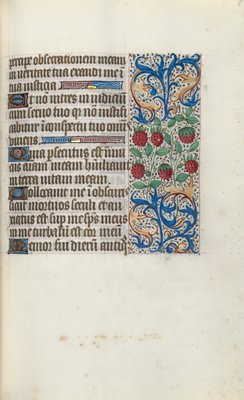 percipe obsecrationem meam
in veritate tua exaudi me i
tua iusticia
Et nō intres in iudiciū
cum servo tuo qr̄ nō iustifi
cabitur i cōspectu tuo om̄s
vivens
Quia psecutus est inimi
cus aīam meam humiliavit
in terra vitam meam
Collocavit me i obscuris
sicut mortuos seculi et anxi
atus est sup me sp̄s meus
in me turbatū est cor meū
Memor fui dierū antiq̄